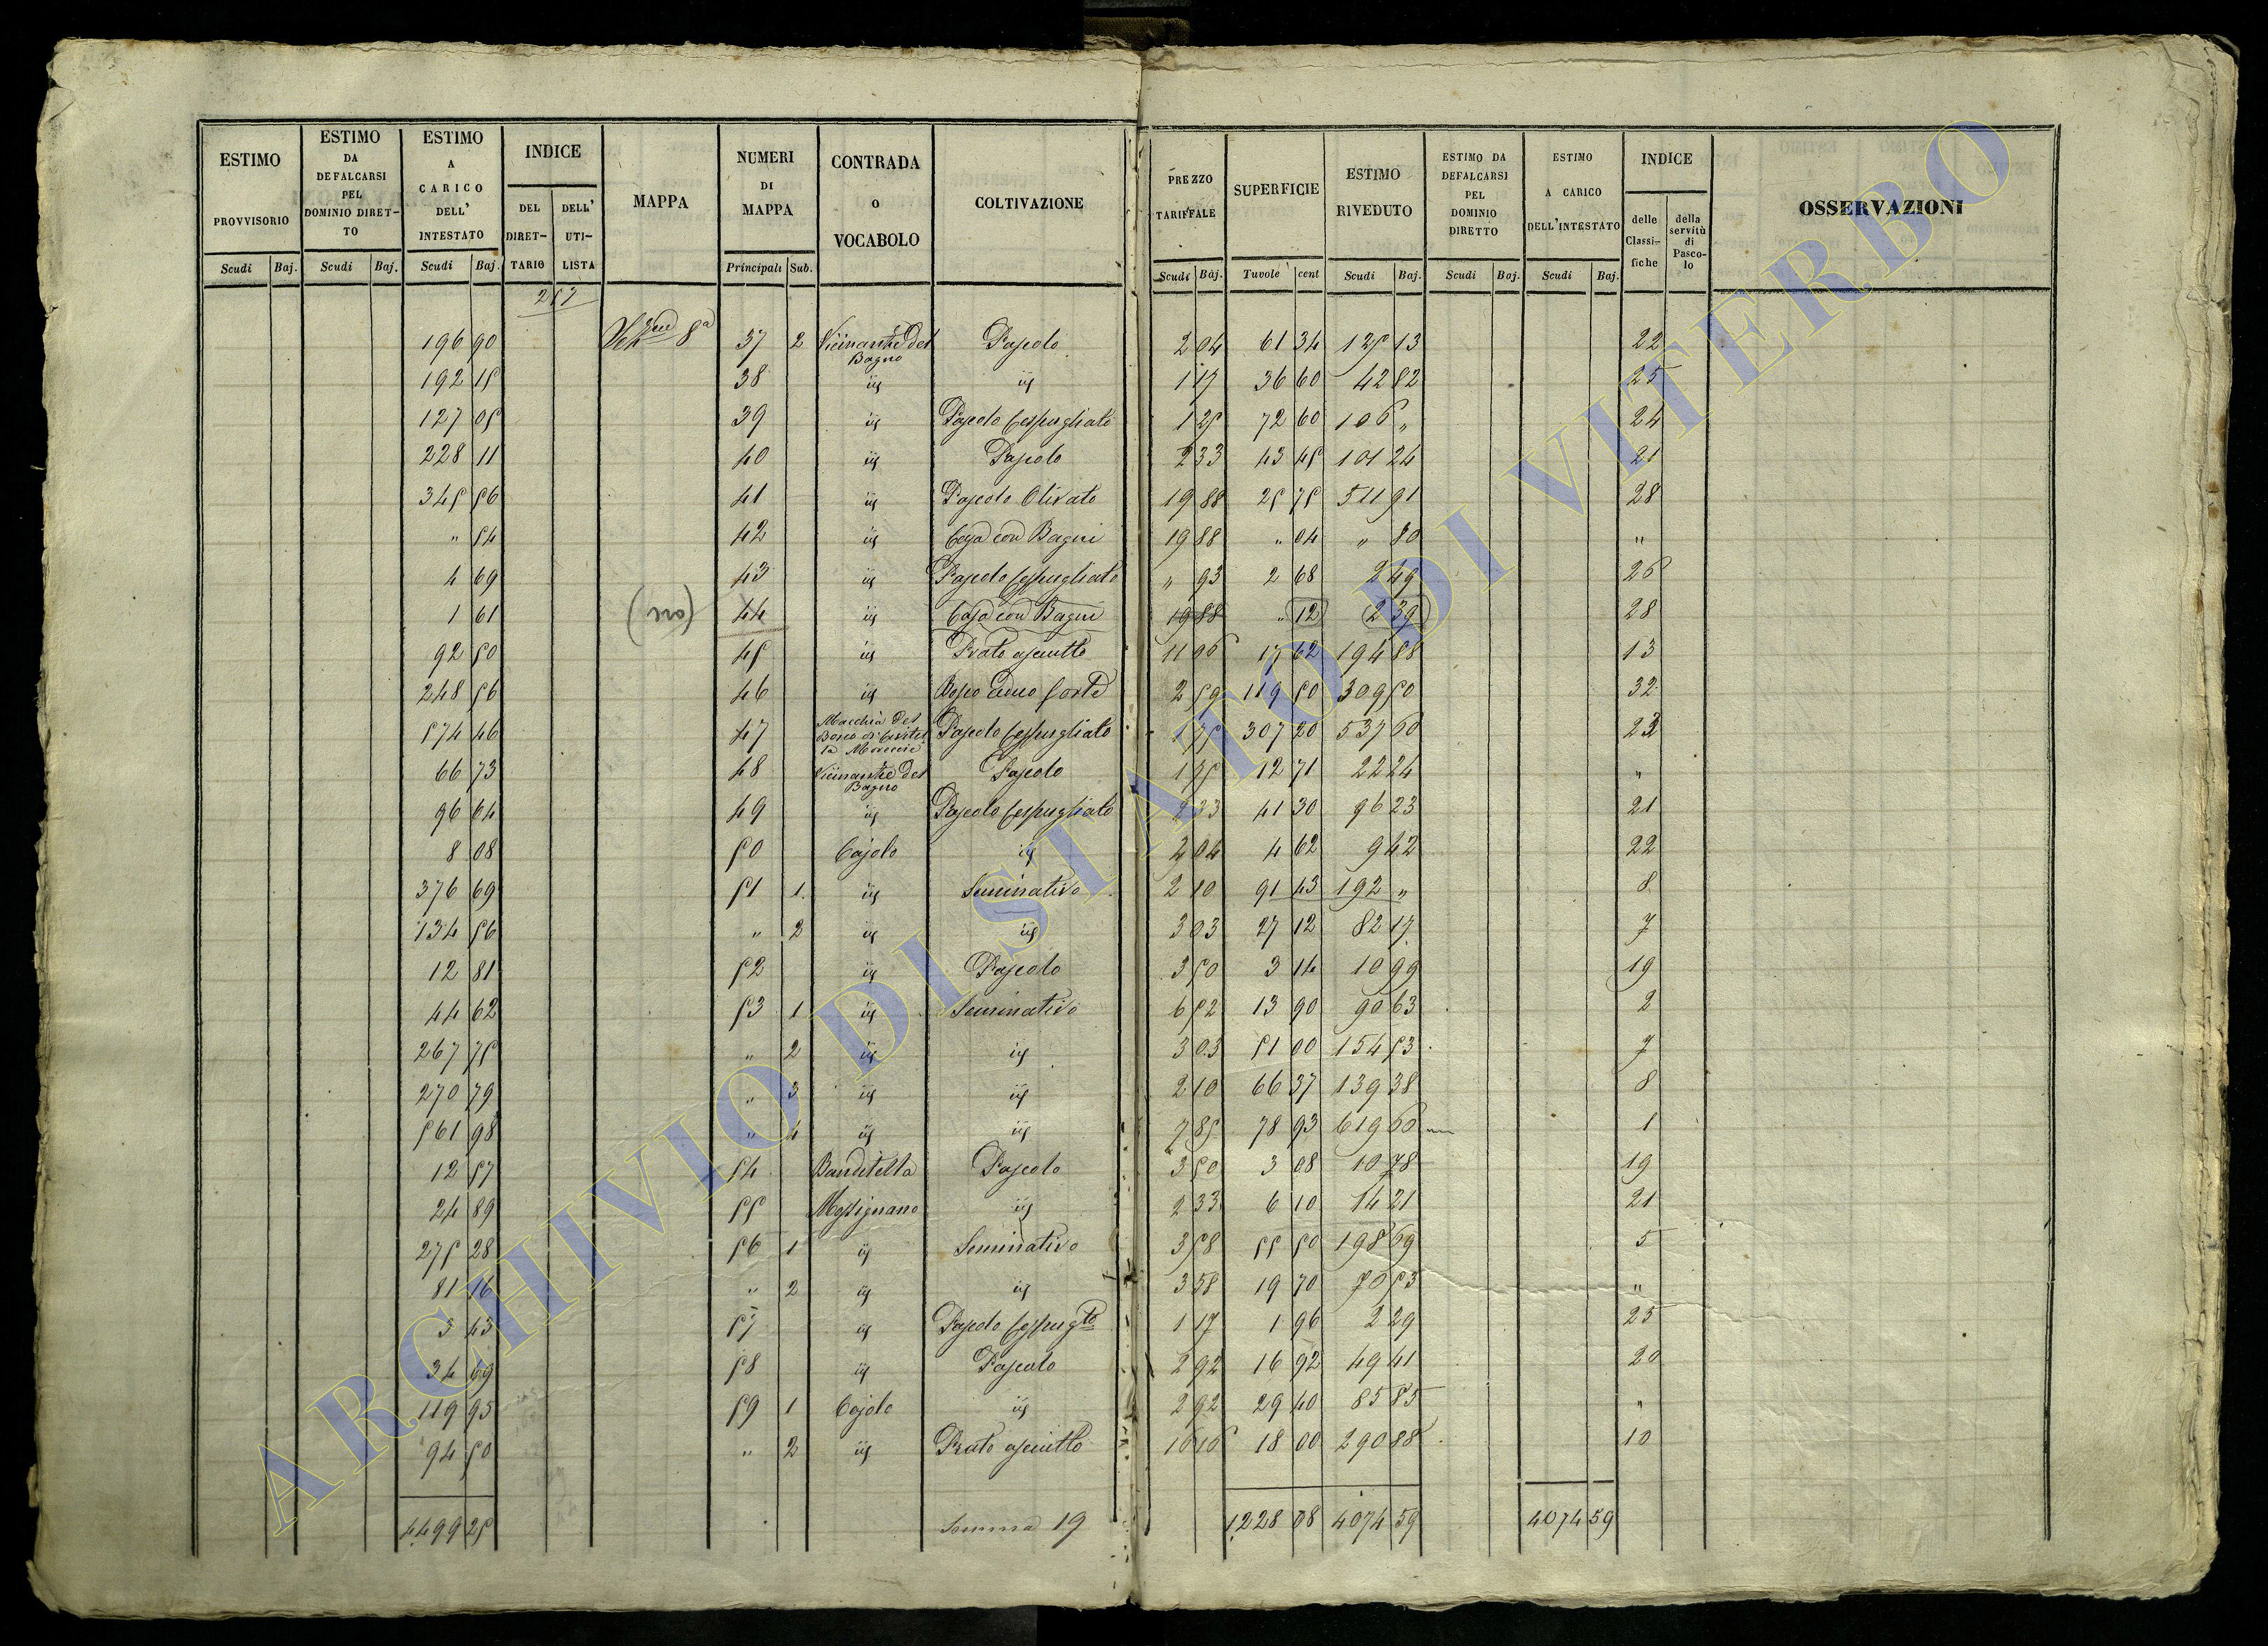 ESTIMO PROVVISORIO Scudi Baj.
ESTIMO DA DEFALCARSI PEL DOMINIO DIRETTO Scudi Baj.
ESTIMO A CARICO DELL' INTESTATO Scudi Baj.
INDICE DEL DIRETTARIO DELL' UTILISTA
MAPPA
NUMERI DI MAPPA Principali Sub.
CONTRADA o VOCABOLO
COLTIVAZIONE
PREZZO TARIFFALE Scudi Baj.
SUPERFICIE Tavole cent
ESTIMO RIVEDUTO Scudi Baj.
ESTIMO DA DEFALCARSI PEL DOMINIO DIRETTO Scudi Baj.
ESTIMO A CARICO DELL'INTESTATO Scudi Baj.
INDICE delle Classifiche della servitù di Pascolo
OSSERVAZIONI
257
196 90 8ª 37 2 Vicinanze del Bagno Pascolo 2 04 61 34 125 13 22
192 15 38 iij iij 1 17 36 60 42 82 25
127 05 39 iij Pascolo cespugliato 1 25 72 60 106 „ 24
228 11 40 iij Pascolo 2 33 43 45 101 24 21
345 56 41 iij Pascolo Olivato 19 88 25 75 511 91 28
„ 54 42 iij Casa con Bagni 19 88 „ 04 „ 80 „
4 69 43 iij Pascolo cespugliato „ 93 2 68 2 49 26
1 61 44 iij Casa con Bagni 19 88 „ 12 2 39 28
92 50 45 iij Prato asciutto 11 06 17 62 194 88 13
248 56 46 iij Bosco ceduo forte 2 59 119 50 309 50 32
574 46 47 Macchia del Bosco di Pascolo cespugliato 1 75 307 20 537 60 23
66 73 48 Vicinanze del Bagno Pascolo 1 75 12 71 22 24 „
96 64 49 iij Pascolo cespugliato 2 33 41 30 96 23 21
8 08 50 Cajolo iij 2 04 4 62 9 42 22
376 69 51 1 iij Seminativo 2 10 91 43 192 „ 8
134 56 „ 2 iij iij 3 03 27 12 82 17 7
12 81 52 iij Pascolo 3 50 3 14 10 99 19
44 62 53 1 iij Seminativo 6 52 13 90 90 63 2
267 75 „ 2 iij iij 3 03 51 00 154 53 7
270 79 „ 3 iij iij 2 10 66 37 139 38 8
561 98 „ 4 iij iij 7 85 78 93 619 60 1
12 57 54 Banditella Pascolo 3 50 3 08 10 78 19
24 89 55 Messignano iij 2 33 6 10 14 21 21
275 28 56 1 iij Seminativo 3 58 55 50 198 69 5
81 16 „ 2 iij iij 3 58 19 70 70 53 „
3 43 57 iij Pascolo cespugto 1 17 1 96 2 29 25
34 69 58 iij Pascolo 2 92 16 92 49 41 20
119 95 59 1 Cajolo iij 2 92 29 40 85 85 „
94 50 „ 2 iij Prato asciutto 16 16 18 00 290 88 10
4499 25 Somma 19 1228 08 4074 59 4074 59
ARCHIVIO DI STATO DI VITERBO